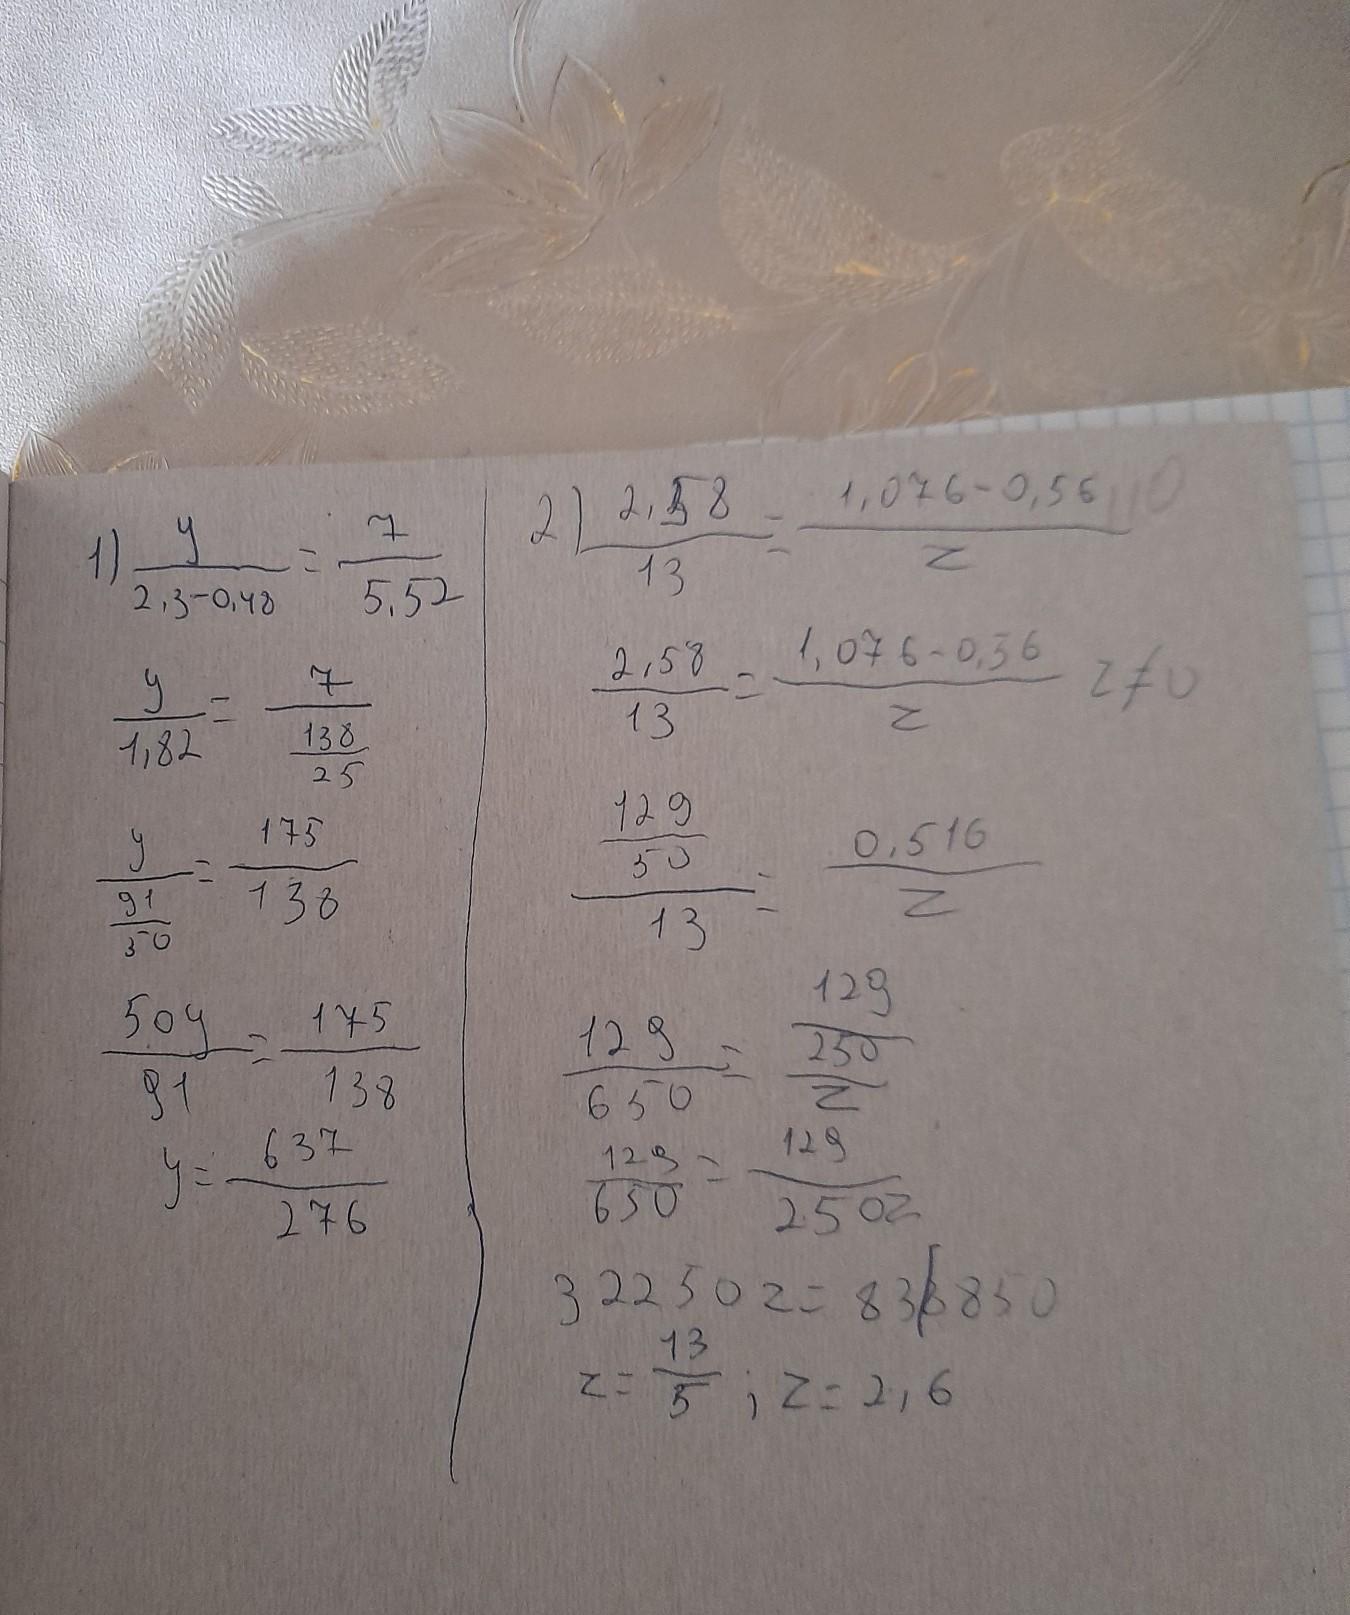 1) y/(2,3-0,48) = 7/5,52
y/1,82 = 7/(138/25)
y/(91/50) = 175/138
50y/91 = 175/138
y = 637/276
2) 2,58/13 = (1,076-0,56)/z
2,58/13 = (1,076-0,56)/z z≠0
(129/50)/13 = 0,516/z
129/650 = (129/250)/z
129/650 = 129/250z
32250z = 83850
z = 13/5 ; z = 2,6